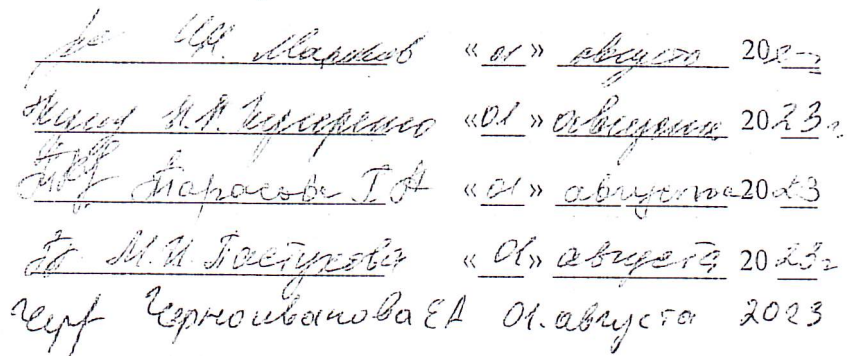 И.И. Марков «01» августа 20
«01» августа 2023г
Тарасова Т А «01» августа 2023
М.И. Пастухова «01» августа 2023г
Черноиванова ЕА 01. августа 2023